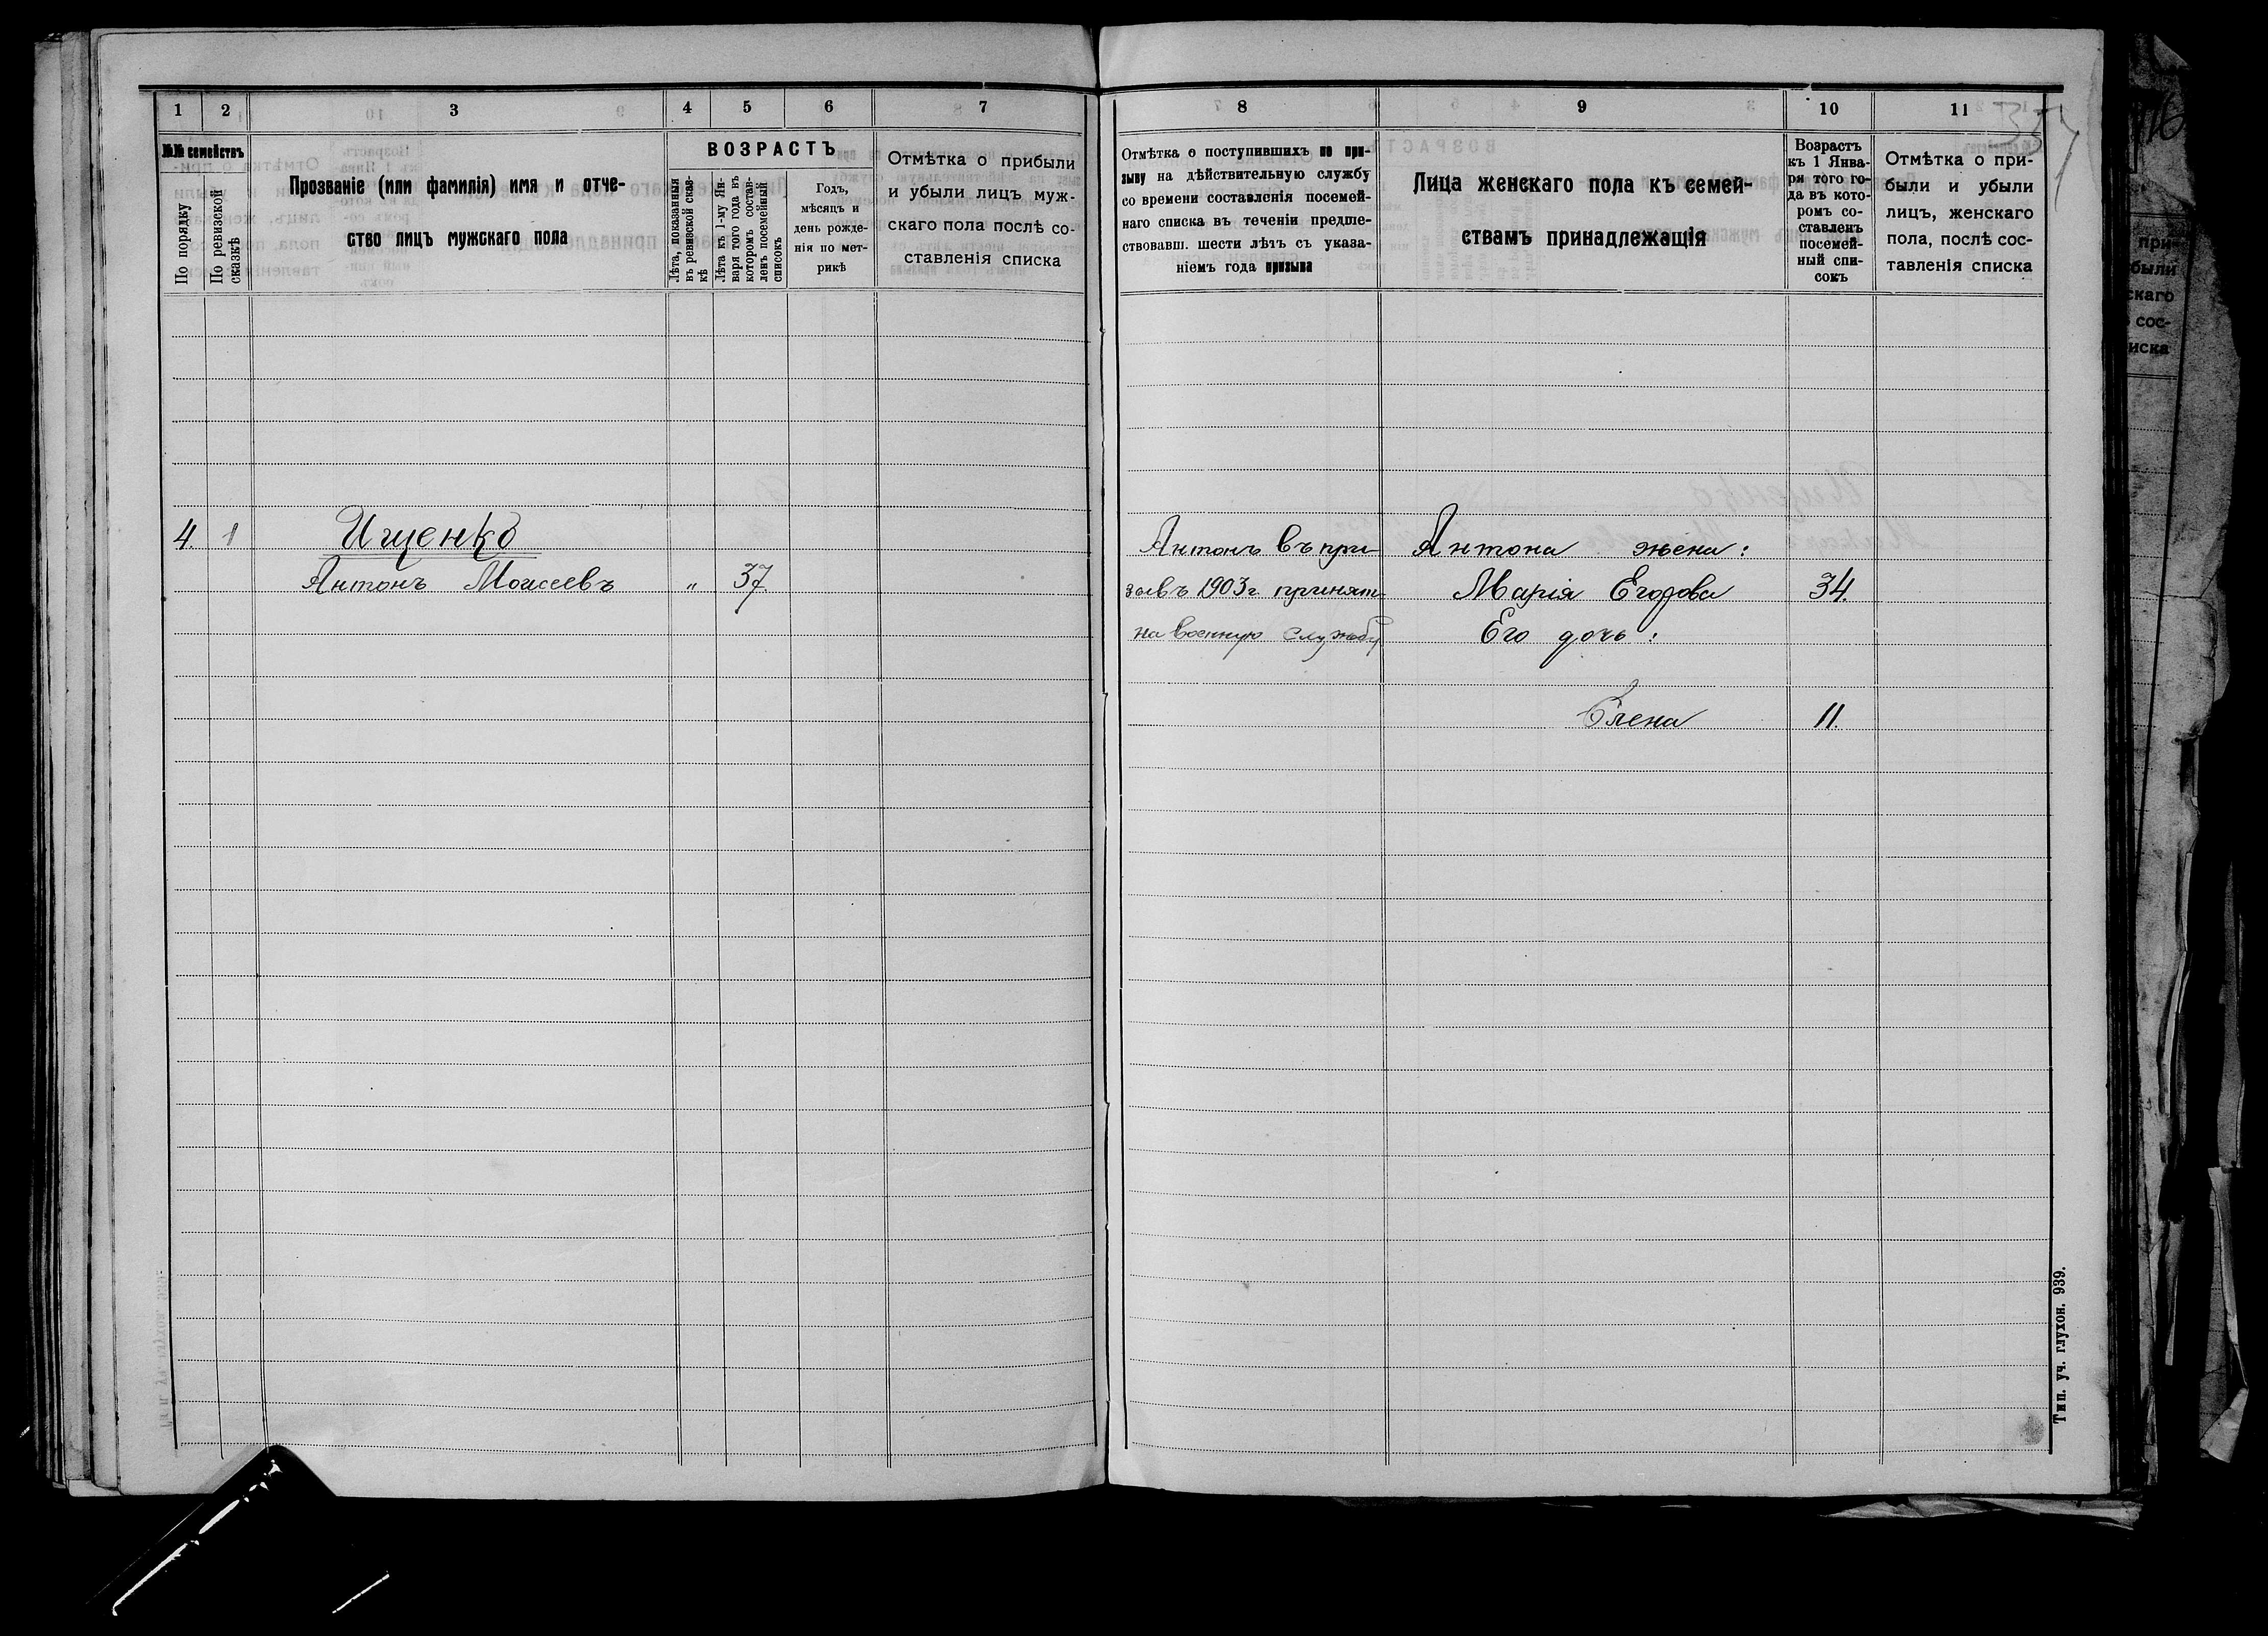 1 2 3 4 5 6 7
№№ семействъ
По порядку
По ревизской сказкѣ
Прозваніе (или фамилія) имя и отче-
ство лицъ мужскаго пола
ВОЗРАСТЪ
Лѣта, показанныя
въ ревизской сказ-
кѣ
Лѣта къ 1-му Ян-
варя того года въ
которомъ состав-
ленъ посемейный
списокъ
Годъ,
мѣсяцъ и
день рожде-
нія по мет-
рикѣ
Отмѣтка о прибыли
и убыли лицъ муж-
скаго пола послѣ со-
ставленія списка
4. 1 Ищенко
Антонъ Моисеевъ " 37.
8 9 10 11
Отмѣтка о поступившихъ по при-
зыву на дѣйствительную службу
со времени составленія посемей-
наго списка въ теченіи предше-
ствовавш. шести лѣтъ съ указа-
ніемъ года призыва
Лица женскаго пола къ семей-
ствамъ принадлежащія
Возрастъ
къ 1 Янва-
ря того го-
да въ кото-
ромъ со-
ставленъ
посемей-
ный спи-
сокъ
Отмѣтка о при-
были и убыли
лицъ, женскаго
пола, послѣ сос-
тавленія списка
Антонъ въ при-
зывъ 1903 г. принятъ
на военную службу
Антона жена:
Марія Егорова 34.
Его дочь:
Елена 11.
Тип. уч. глухон. 939.
при-
были
скаго
сос-
иска